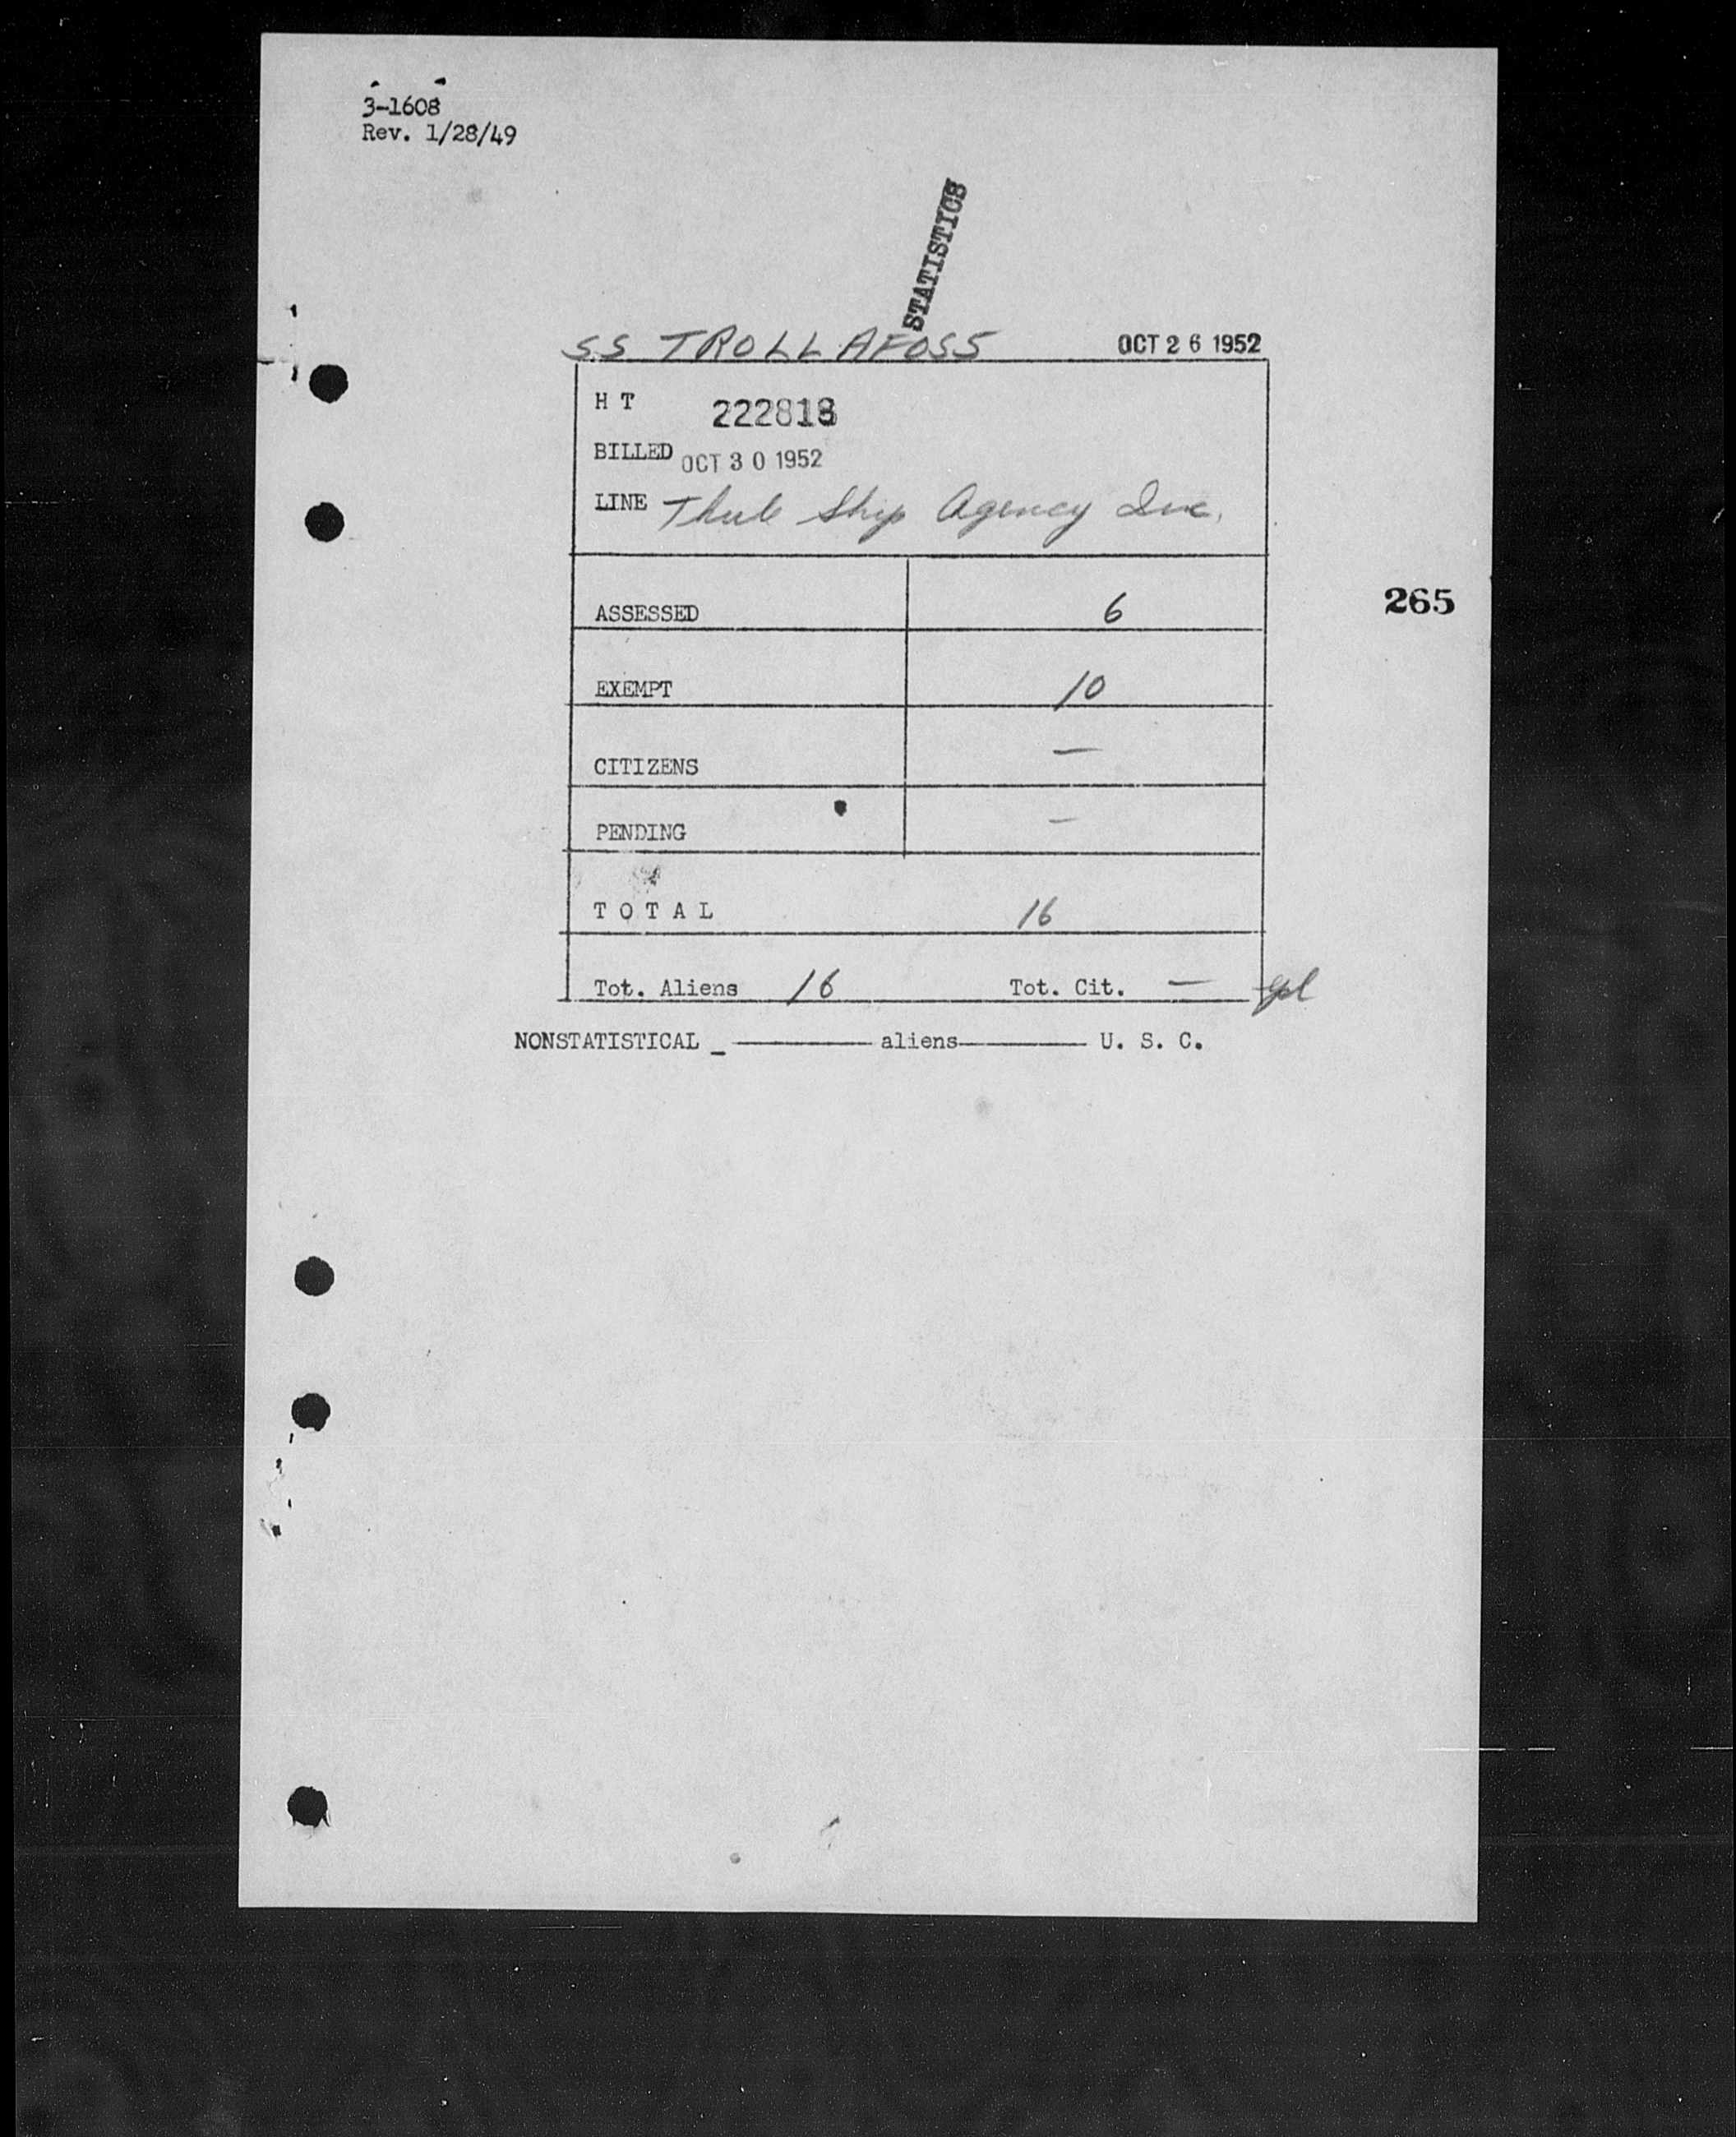 3-1608
Rev. 1/28/49
STATISTICS
SS TROLLAFOSS OCT 26 1952
H T 222818
BILLED OCT 30 1952
LINE Thule Ship Agency Inc.
265
ASSESSED 6
EXEMPT 10
CITIZENS —
PENDING —
T O T A L 16
Tot. Aliens 16 Tot. Cit. —
NONSTATISTICAL _ ———— aliens———— U. S. C.